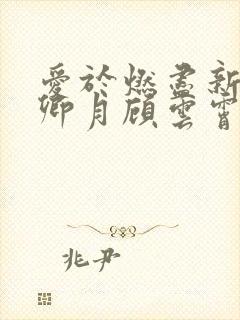 愛於燃盡新
卿月顧雲霄
兆尹